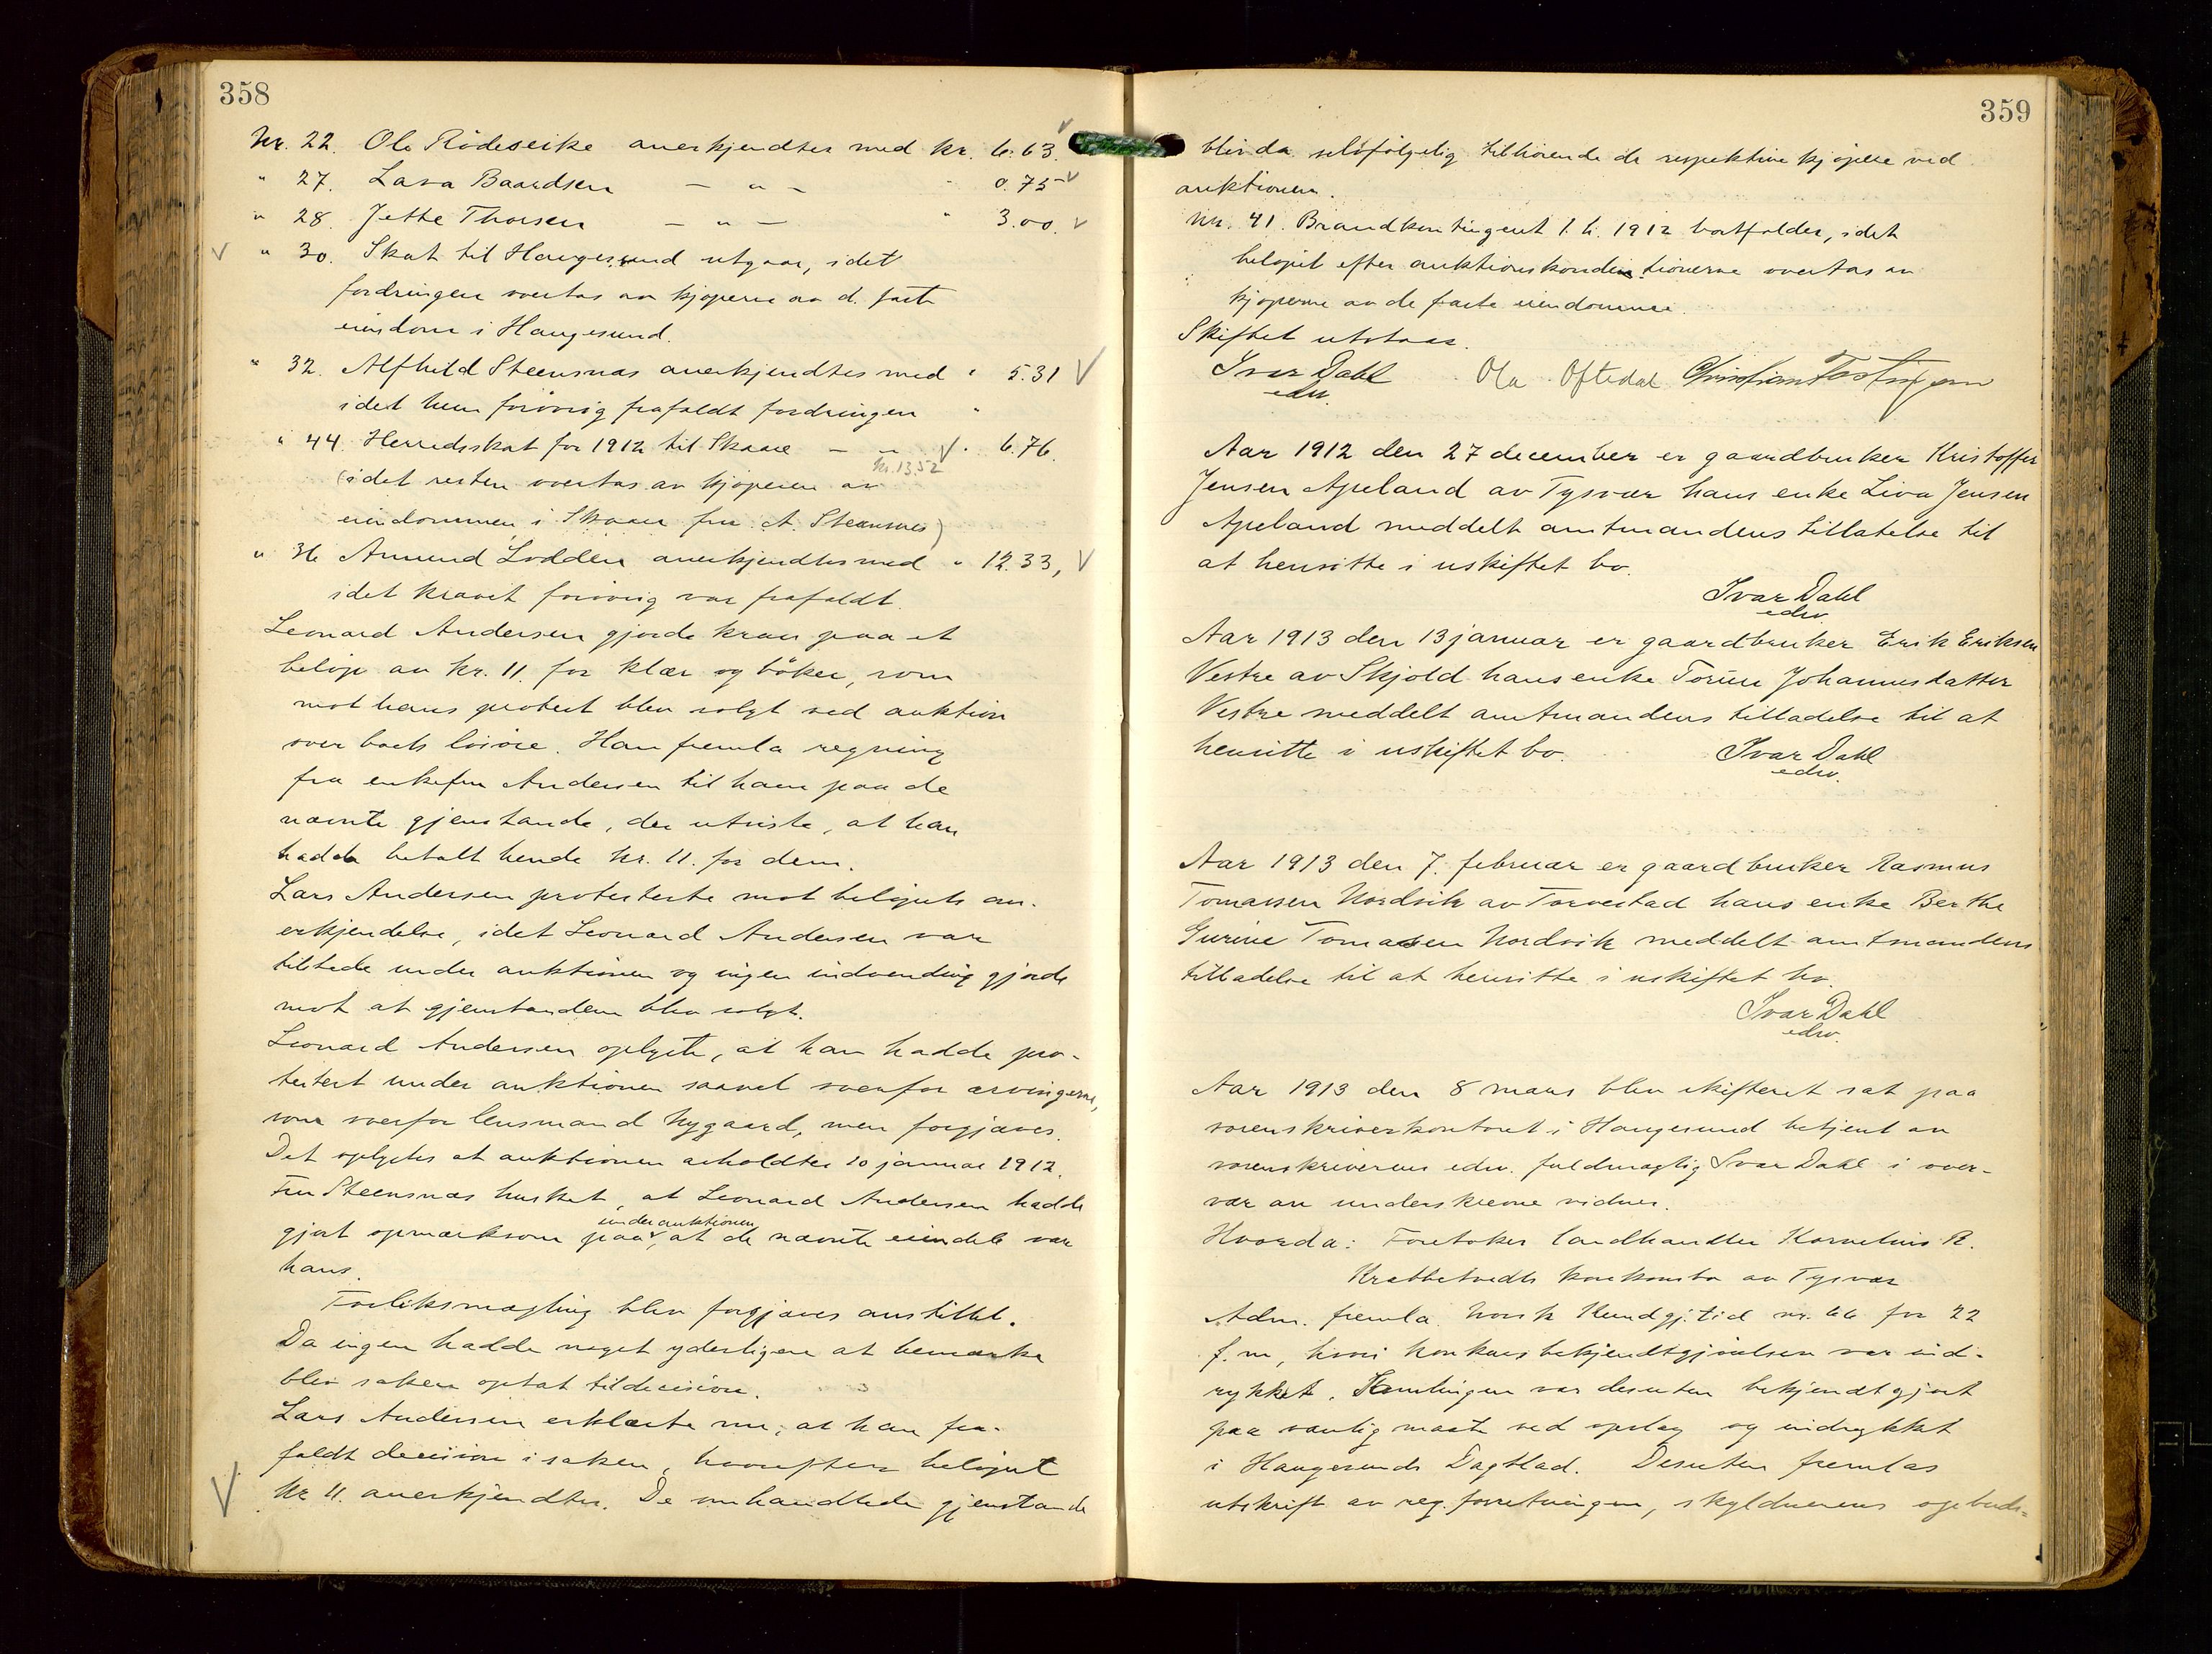 358
Nr. 22. Ole Rödeseike anerkjendtes med kr. 6.63.
" 27. Lava Baardsen — " — " 0.75
" 28. Jette Thorsen — " — " 3.00.
" 30. Skat til Haugesund utgaar, idet
fordringen overtas av kjöperne av d. faste
eiendom i Haugesund.
" 32. Alfhild Steensnæs anerkjendtes med " 5.31
idet hun forövrig frafaldt fordringen "
" 44. Herredsskat for 1912 til Skaare — " — " 6.76.
kr. 13.52
(idet resten overtas av kjöperen av
eiendommen i Skaare fru A. Steensnes)
" 36 Amund Lodden anerkjendtes med " 12.33,
idet kravet forövrig var frafaldt.
Leonard Andersen gjorde krav paa et
belöp av kr. 11. for klær og böker, som
mot hans protest blev solgt ved auktion
over boets lösöre. Han fremla regning
fra enkefru Andersen til ham paa de
nævnte gjenstande, der utviste, at han
hadde betalt hende kr. 11. for dem.
Lars Andersen protesterte mot belöpets an-
erkjendelse, idet Leonard Andersen var
tilstede under auktionen og ingen indvending gjorde
mot at gjenstandene blev solgt.
Leonard Andersen oplyste, at han hadde pro-
testert under auktionen saavel overfor arvingerne,
som overfor lensmand Nygaard, men forgjæves.
Det oplystes at auktionen avholdtes 10 januar 1912.
Fru Steensnæs husket, at Leonard Andersen hadde
under auktionen
gjort opmerksom paa, at de nævnte eiendele var
hans.
Forliksmægling blev forgjæves anstillet.
Da ingen hadde noget yderligere at bemærke
blev saken optat til decision.
Lars Andersen erklærte nu, at han fra-
faldt decision i saken, hvorefter belöpet
kr 11. anerkjendtes. De omhandlede gjenstande
359
blir da selvfölgelig tilhörende de respektive kjöpere ved
auktionen.
Nr. 41. Brandkontingent 1. h. 1912 bortfalder, idet
belöpet efter auktionskonditionerne overtas av
kjöperne av de faste eiendomme.
Skiftet utstaar.
Ivar Dahl
edsv.
Ola Oftedal Christian
Aar 1912 den 27 december er gaardbruker Kristoffer
Jensen Apeland av Tysvær hans enke Liva Jensen
Apeland meddelt amtmandens tillatelse til
at hensitte i uskiftet bo.
Ivar Dahl
edsv.
Aar 1913 den 13 januar er gaardbruker Erik Eriksen
Vestre av Skjold hans enke Torine Johannesdatter
Vestre meddelt amtmandens tilladelse til at
hensitte i uskiftet bo.
Ivar Dahl
edsv.
Aar 1913 den 7. februar er gaardbruker Rasmus
Tomassen Nordvik av Torvestad hans enke Berthe
Gurine Tomassen Nordvik meddelt amtmandens
tilladelse til at hensitte i uskiftet bo.
Ivar Dahl
edsv.
Aar 1913 den 8 mars blev skifteret sat paa
sorenskriverkontoret i Haugesund betjent av
sorenskriverens edsv. fuldmægtig Ivar Dahl i over-
vær av underskrevne vidner.
Hvorda: Foretokes landhandler Kornelius R.
Krabbetvedts konkursbo av Tysvær
Adm. fremla Norsk Kundgj.tid nr. 66 for 22
f.m, hvori konkursbekjendtgjörelsen var ind-
rykket. Samlingen var desuten bekjendtgjort
paa vanlig maate ved opslag og indrykket
i Haugesunds Dagblad. Desuten fremlas
utskrift av reg.forretningen, skyldnerens opbuds-